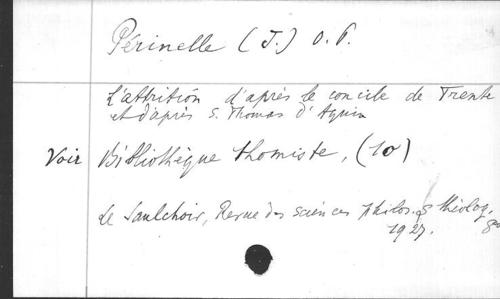 Périnelle (J.) O.P.
L'attrition d'après le concile de Trente
et d'après S. Thomas d'Aquin
Voir Bibliothèque thomiste, (10)
Le Saulchoir, Revue des sciences philos. & théolog.
1927. 8°